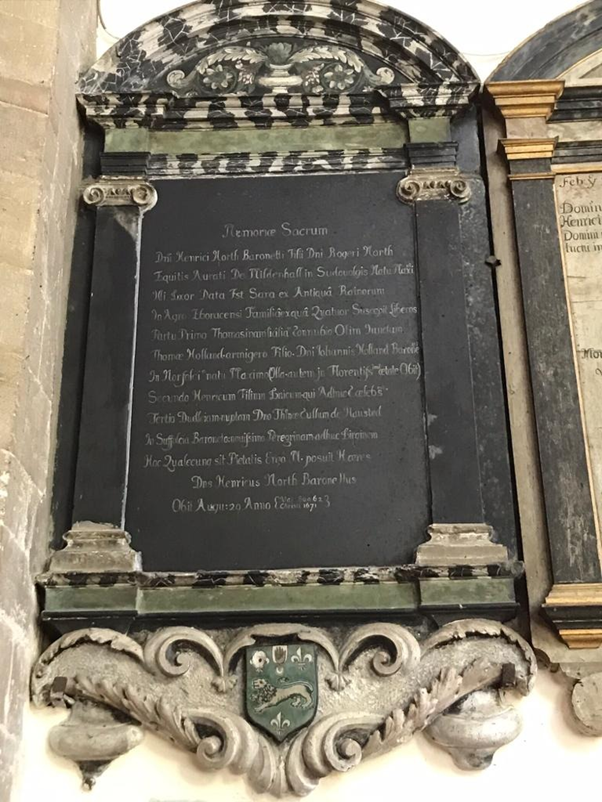 Memoriæ Sacrum
Dni Henrici North Baronetti Filii Dni Rogeri North
Equitis Aurati De Mildenhall in Sudovolgio Natu Maxi
Illi Uxor Data Est Sara ex Antiquâ Rainorum
In Agro Eboracensi Familiâ exquâ Quatuor Suscepit Liberos
Partu Primo Thomasinam Connubio Olim Iunctam
Thomæ Holland armigero Filio Dni Iohannis Holland Baronet
In Norfolci natu Maximo autem in Florenti ætate Obiit
Secundo Henricum Filium Unicum qui Adhuc
Tertio Dudleiam nuptam Dno Thomæ Cullum de Hausted
In Suffolcia Baronetto Peregrinam adhuc
Hoc Qualecunq sit Pietatis Ergo M. posuit Hæres
Dns Henricus North Baronettus
Obiit Aug: 29 Anno 1671
Feb
Domin
Henric
Domini